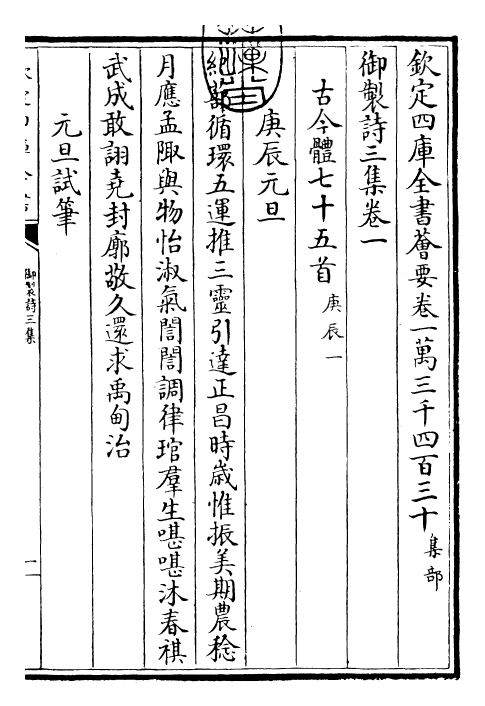 欽定四庫全書薈要卷一萬三千四百三十 集部
御製詩三集卷一
古今體七十五首 庚辰一
庚辰元旦
紀蔀循環五運推三靈引達正昌時歲惟振美期農稔
月應孟陬與物怡淑氣誾誾調律琯羣生喁喁沐春祺
武成敢詡堯封廓敬久還求禹甸治
元旦試筆
御製詩三集
一